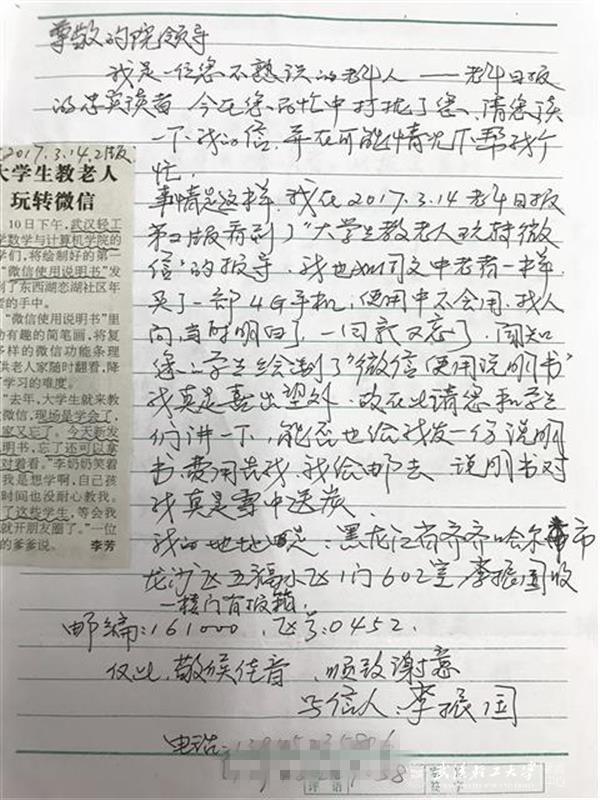 尊敬的院领导
我是一位您不熟识的老年人——老年日报
的忠实读者 今在您百忙中打扰了您、请您读
一下我的信、并在可能情况下帮我个
忙。
事情是这样、我在2017.3.14老年日报
第2版看到了“大学生教老人玩转微
信”的报导、我也如同文中老者一样
买了一部4G手机;使用中不会用、找人
问,当时明白了、一回家又忘了、闻知
您的学生绘制了“微信使用说明书”
我真是喜出望外、故在此请您和学生
们讲一下,能否也给我发一份说明
书、费用告我、我给邮去 说明书对
我真是雪中送炭
我的地址是:黑龙江省齐齐哈尔市
龙沙区五福小区1门602室 李振国收
一楼门有报箱
邮编:161000、区号:0452.
仅此、敬候佳音、顺致谢意
写信人:李振国
电话:
2017.3.14.2版
大学生教老人
玩转微信
10日下午,武汉轻工
学数学与计算机学院的
们,将绘制好的第一
“微信使用说明书”发
到了东西湖恋湖社区年
的手中。
“微信使用说明书”里
有趣的简笔画,将复
多样的微信功能条理
供老人家随时翻看,降
学习的难度。
“去年,大学生就来教
微信,现场是学会了,
家又忘了。今天新发
明书,忘了还可以拿
对着看。”李奶奶笑着
我是想学啊,自己孩
时间也没耐心教我。
了这些学生,等会我
就开朋友圈了。”一位
的爹爹说。 李芳
评语
签字
武汉轻工大学